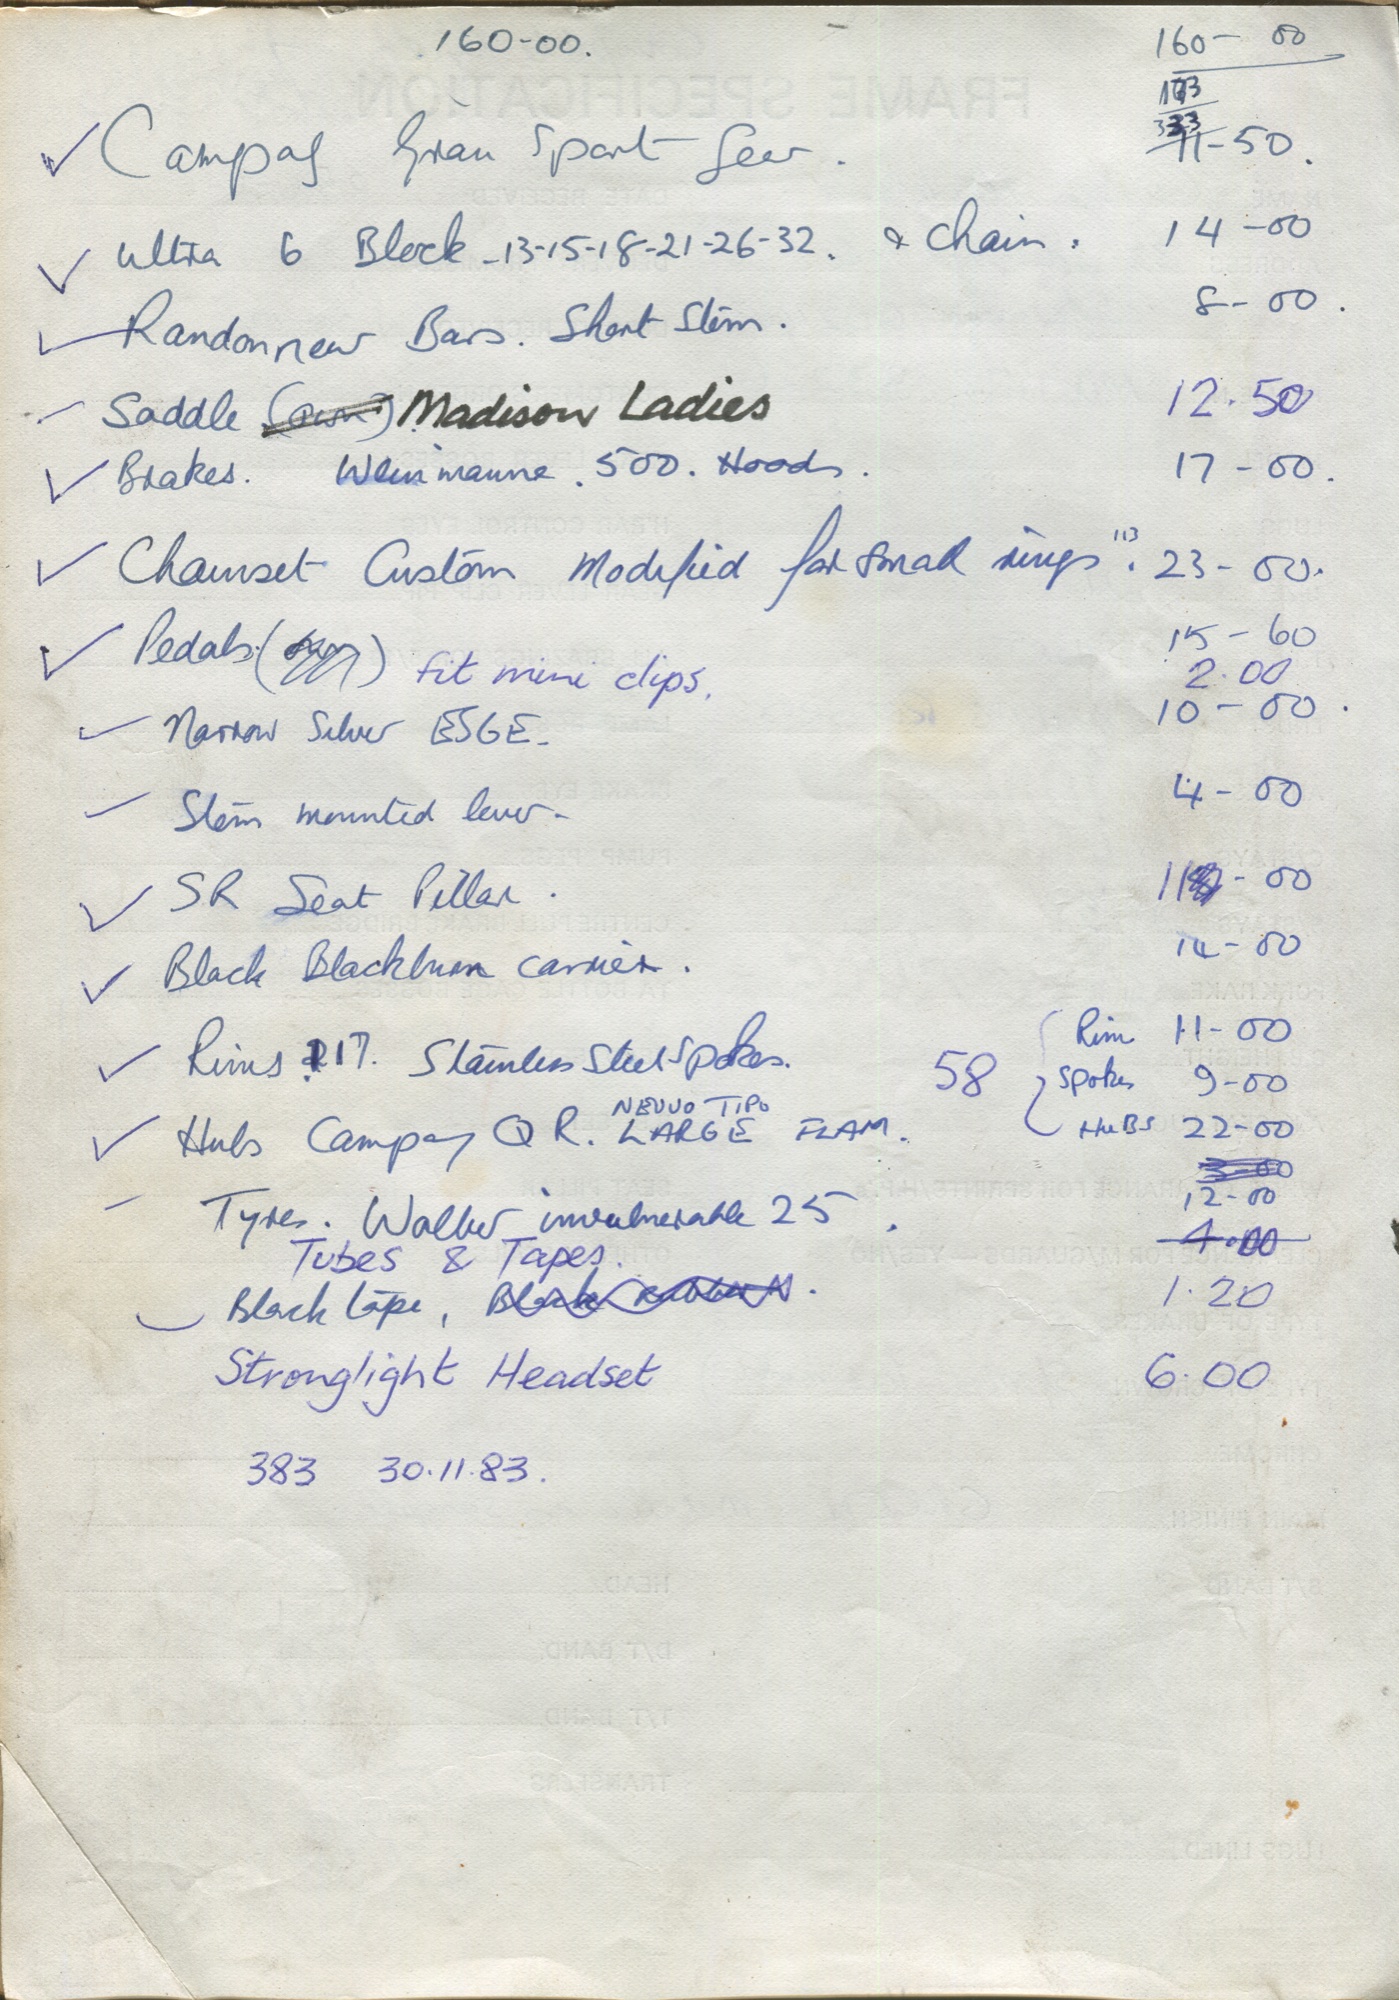 160-00. 160-00
173
333
✓ Campag Gran Sport Gear. 11-50.
✓ Ultra 6 Block - 13-15-18-21-26-32. & Chain. 14-00
✓ Randonneur Bars. Short Stem. 8-00.
Saddle (own) Madison Ladies 12.50
✓ Brakes. Weinmanne. 500. Hoods. 17-00.
✓ Chainset Custom Modified for small rings "113. 23-00.
✓ Pedals. ( ) fit mini clips. 15-60
2.00
Narrow Silver ESGE - 10-00.
Stem mounted lever - 4-00
✓ SR Seat Pillar. 11-00
✓ Black Blackburn carrier. 14-00
✓ Rims 117. Stainless Steel Spokes. 58 Rim 11-00
Spokes 9-00
NEUVO TIPO
✓ Hubs Campag Q R. LARGE FLAM. HUBS 22-00
3-00
Tyres. Wolber invulnerable 25. 12-00
Tubes & Tapes. 4.00
Black tape, Black 1.20
Stronglight Headset 6.00
383 30.11.83.
FRAME SPECIFICATION